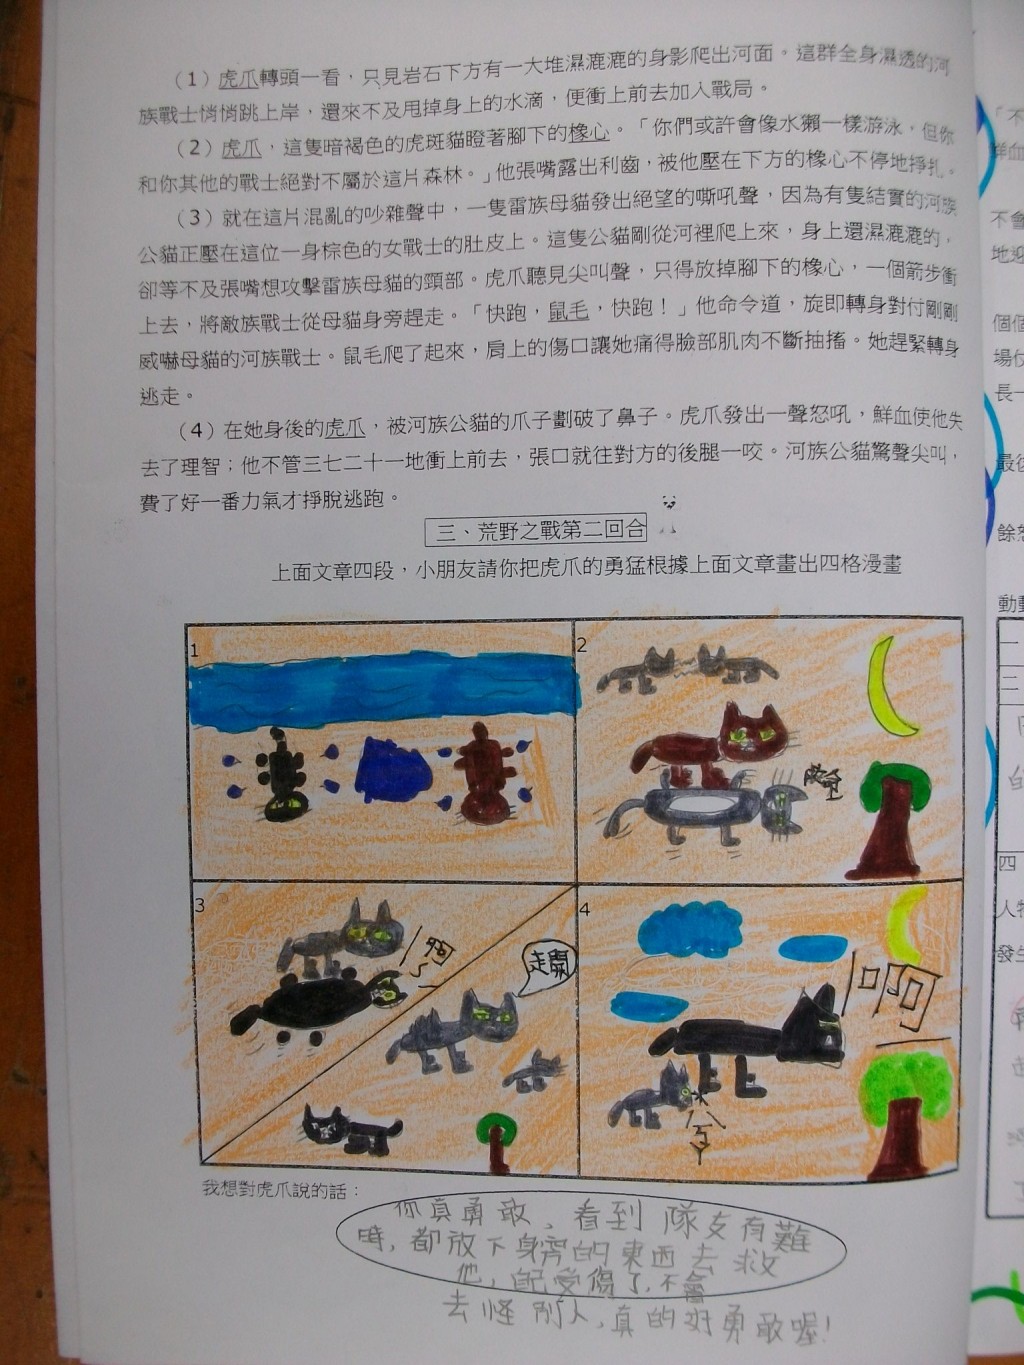 (1)虎爪轉頭一看，只見岩石下方有一大堆濕漉漉的身影爬出河面。這群全身濕透的河
族戰士悄悄跳上岸，還來不及甩掉身上的水滴，便衝上前去加入戰局。
(2)虎爪，這隻暗褐色的虎斑貓瞪著腳下的橡心。「你們或許會像水獺一樣游泳，但你
和你其他的戰士絕對不屬於這片森林。」他張嘴露出利齒，被他壓在下方的橡心不停地掙扎。
(3)就在這片混亂的吵雜聲中，一隻雷族母貓發出絕望的嘶吼聲，因為有隻結實的河族
公貓正壓在這位一身棕色的女戰士的肚皮上。這隻公貓剛從河裡爬上來，身上還濕漉漉的，
卻等不及張嘴想攻擊雷族母貓的頸部。虎爪聽見尖叫聲，只得放掉腳下的橡心，一個箭步衝
上去，將敵族戰士從母貓身旁趕走。「快跑，鼠毛，快跑！」他命令道，旋即轉身對付剛剛
威嚇母貓的河族戰士。鼠毛爬了起來，肩上的傷口讓她痛得臉部肌肉不斷抽搐。她趕緊轉身
逃走。
(4)在她身後的虎爪，被河族公貓的爪子劃破了鼻子。虎爪發出一聲怒吼，鮮血使他失
去了理智；他不管三七二十一地衝上前去，張口就往對方的後腿一咬。河族公貓驚聲尖叫，
費了好一番力氣才掙脫逃跑。
三、荒野之戰第二回合
上面文章四段，小朋友請你把虎爪的勇猛根據上面文章畫出四格漫畫
1
2
3
啊
走開
4
啊
我想對虎爪說的話：
你真勇敢，看到隊友有難
時，都放下身旁的東西去救
他，自己受傷了，不會
去怪別人，真的好勇敢喔！